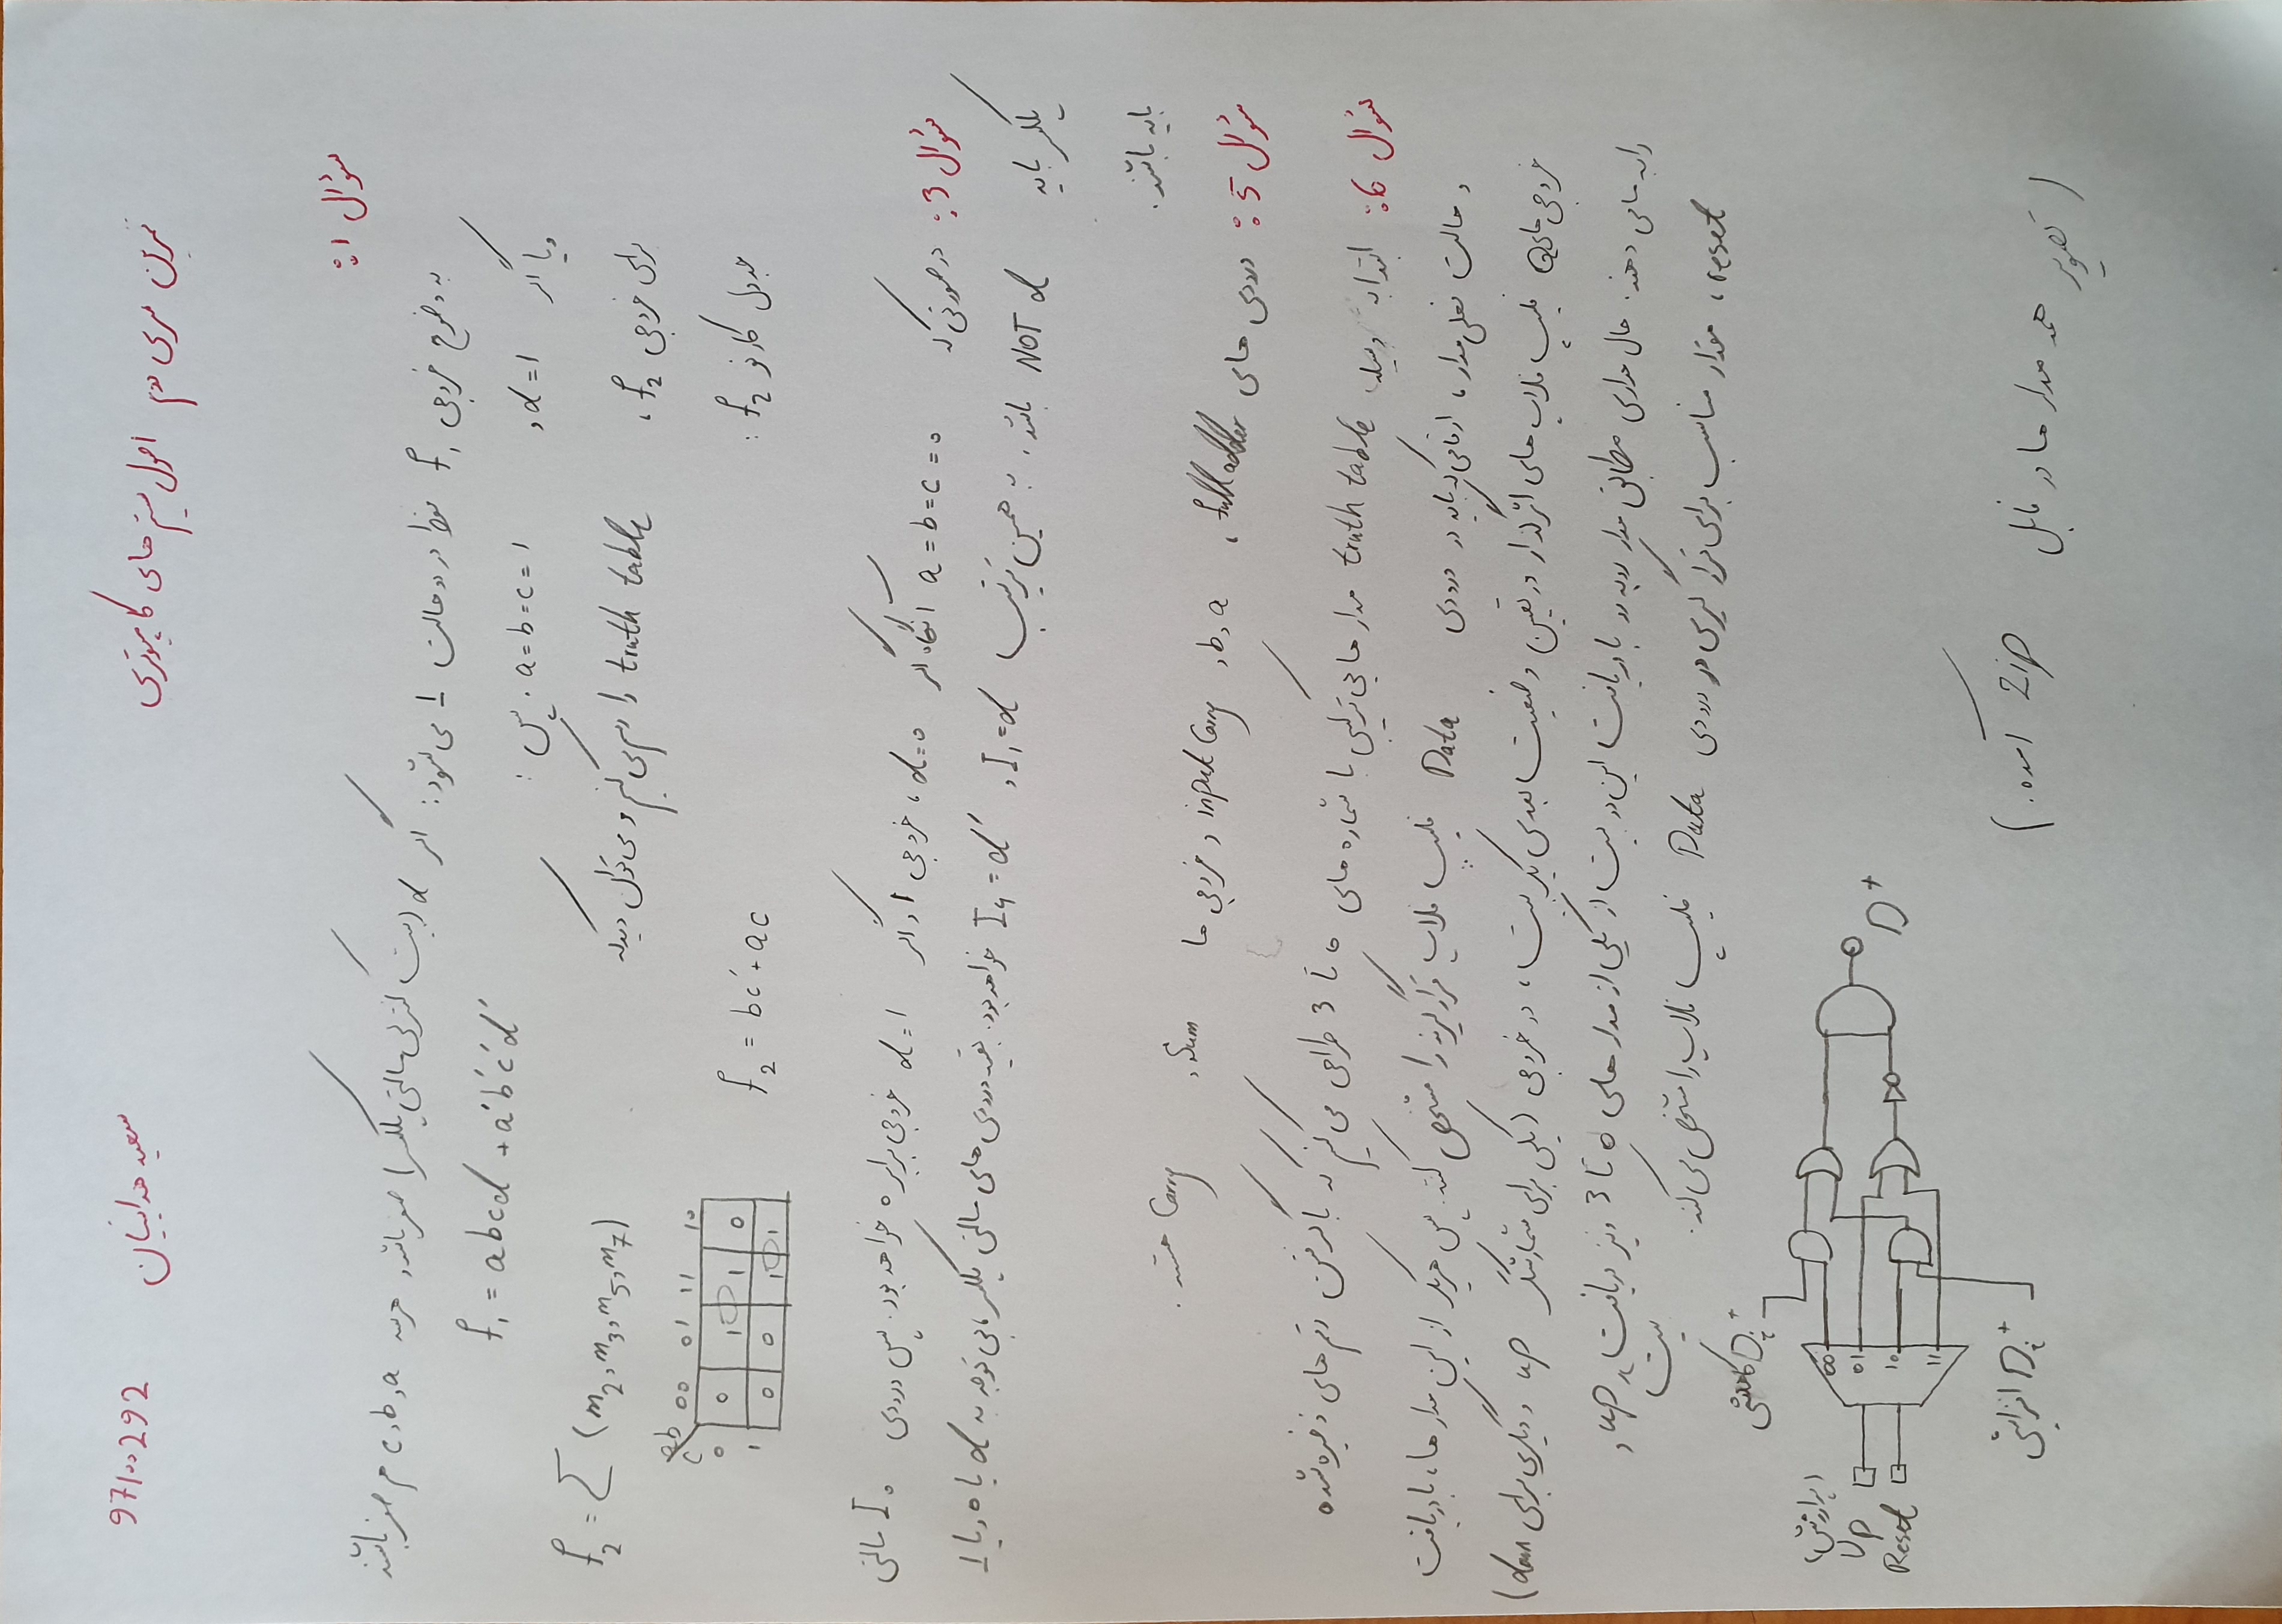 تمرین سری دوم اصول سیستم های کامپیوتری
سعید هداییان 97100292
سؤال ۱:
به وضوح خروجی f₁ فقط در دو حالت 1 می شود: اگر d (بیت کنترلی مالتی پلکسر) صفر باشد و هر سه a و b و c هم صفر باشند
و یا اگر d=1 و a=b=c=1. پس:
f₁ = abcd + a'b'c'd'
برای خروجی f₂، truth table را رسم می کنیم و می توان دید که
f₂ = Σ (m₂, m₃, m₅, m₇)
جدول کارنو f₂:
f₂ = bc' + ac
ab 00 01 11 10
c
0 0 1 1 0
1 0 0 1 1
سؤال 3: در صورتی که a=b=c=0 آنگاه اگر d=0، خروجی 1 و اگر d=1 خروجی برابر 0 خواهد بود. پس ورودی I₀ مالتی
پلکسر باید NOT d باشد. به همین ترتیب I₁=d و I₄=d' خواهد بود. بقیه ورودی های مالتی پلکسر، بی توجه به d یا 0 و یا 1
باید باشند.
سؤال 5: ورودی های full adder، a و b و input Carry و خروجی ها Sum و Carry هستند.
سؤال 6: ابتدا به وسیله truth table مدار هایی ترکیبی با شماره های 0 تا 3 طراحی می کنیم که با گرفتن رقم های ذخیره شده
و حالت فعلی مدار، ارقامی که باید در ورودی Data فلیپ فلاپ قرار گیرند را مشخص کند. پس هر یک از این مدار ها، با دریافت
خروجی های Q فلیپ فلاپ های اثرگذار در تعیین وضعیت بعدی یک بیت، در خروجی (یکی برای شمارشگر up و دیگری برای down)
را به ما می دهند. حال مداری مطابق مدار روبه رو با دریافت این دو بیت از یکی از مدار های 0 تا 3 و نیز دریافت بیت up و
reset، مقدار مناسب برای قرار گیری در ورودی Data فلیپ فلاپ را مشخص می کند.
Dᵢ⁺ کاهشی
(پرارزش)
Up
Reset
00
01
10
11
D⁺
Dᵢ⁺ افزایشی
(تصویر همه مدار ها در فایل Zip آمده.)